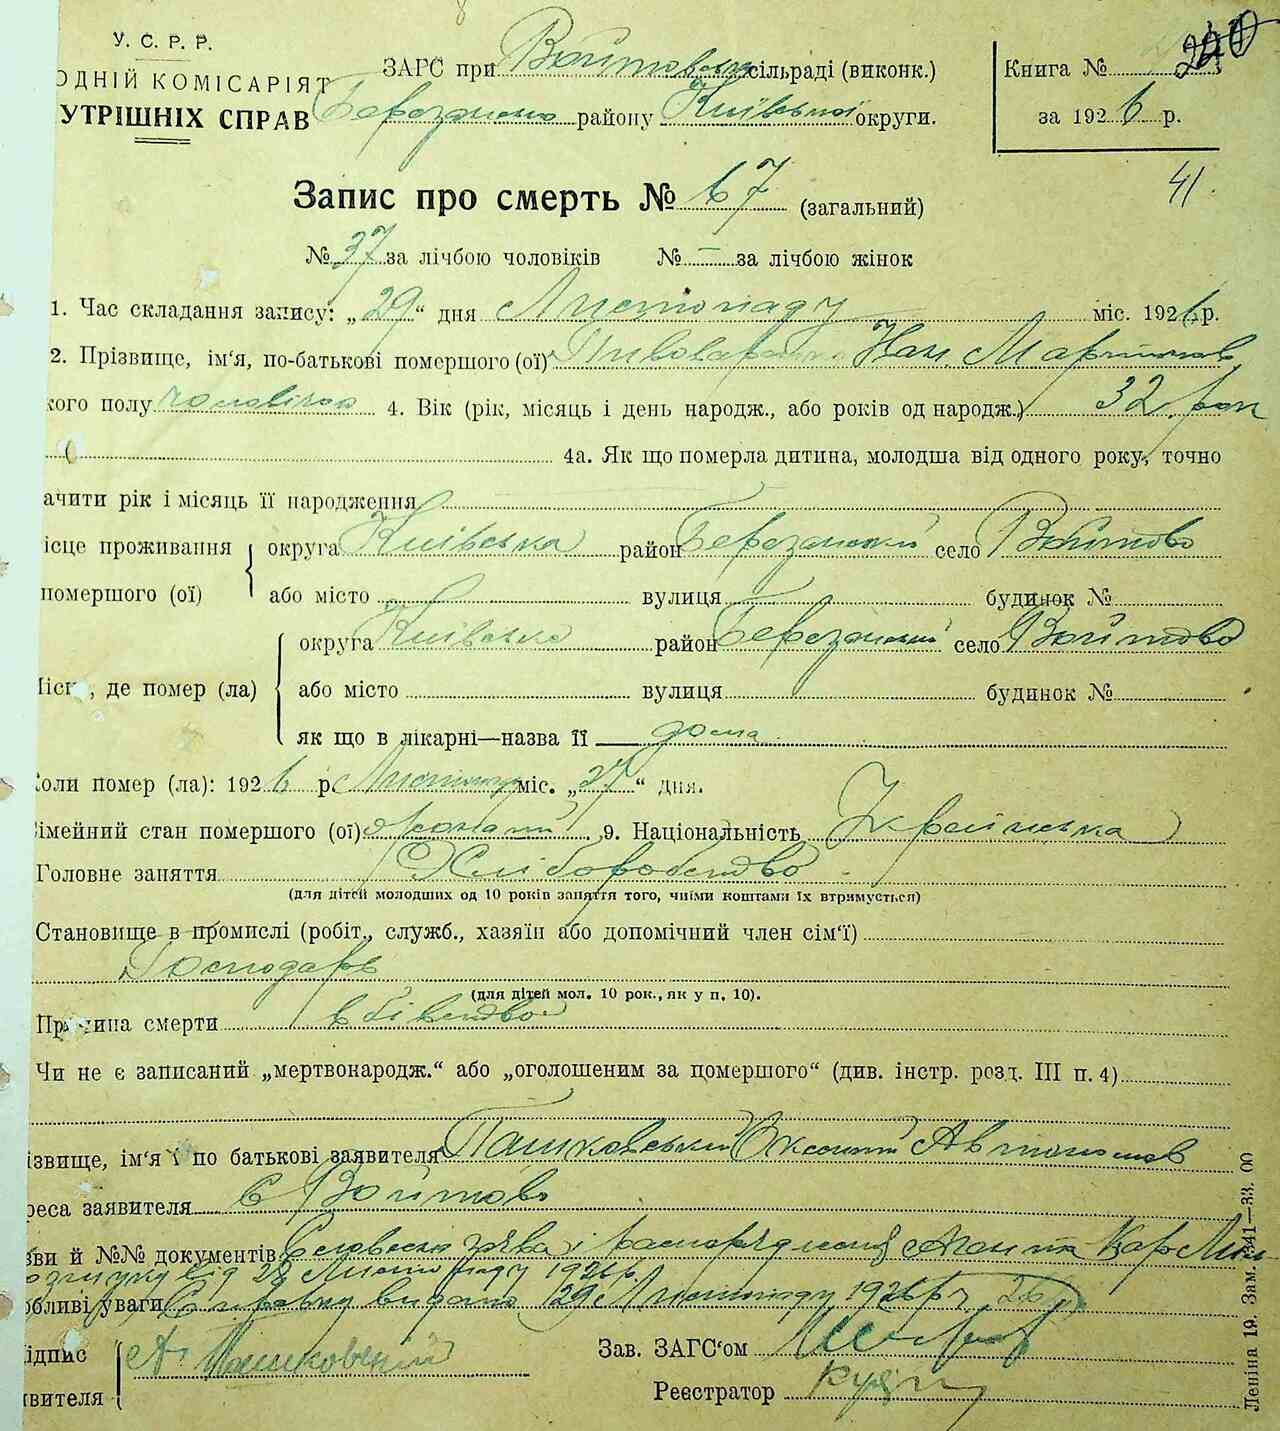 У. С. Р. Р.
ОДНІЙ КОМІСАРІЯТ
УТРІШНІХ СПРАВ
ЗАГС при Войтовськ сільраді (виконк.)
Березанськ району Київської округи.
Книга №
за 1926 р.
41.
Запис про смерть № 67 (загальний)
№ 37 за лічбою чоловіків № — за лічбою жінок
1. Час складання запису: „29“ дня Листопаду міс. 1926 р.
2. Прізвище, ім'я, по-батькові померш​ого (ої) Мартинов
кого полу чоловічого 4. Вік (рік, місяць і день народж., або років од народж.) 32 рок
4а. Як що померла дитина, молодша від одного року, точно
ачити рік і місяць її народження
ісце проживання округа Київська район Березанський село Войтово
помершого (ої) або місто вулиця будинок №
округа Київська район Березанський село Войтово
Місц , де помер (ла) або місто вулиця будинок №
як що в лікарні—назва її дома
Коли помер (ла): 1926 р. Листопаду міс. „27“ дня.
Сімейний стан померш​ого (ої) жонатий 9. Національність Українська
Головне заняття Хліборобство
(для дітей молодших од 10 років заняття того, чиїми коштами їх втримується)
Становище в промислі (робіт., служб., хазяїн або допомічний член сім'ї)
Господарь
(для дітей мол. 10 рок., як у п. 10).
Причина смерти вбівство
Чи не є записаний „мертвонародж.“ або „оголошеним за померш​ого“ (див. інстр. розд. III п. 4)
ізвище, ім'я і по батькові заявителя Пашковський Автономов
реса заявителя С Войтово
зви й №№ документів Словесна заява і
розшуку від 28 Листопаду 1926 р.
обливі уваги Справку видано 29 Листопаду 1926 р
ідпис А. Пашковський Зав. ЗАГС'ом
явителя Реєстратор
Леніна 19. Зам. 1341—33. 00